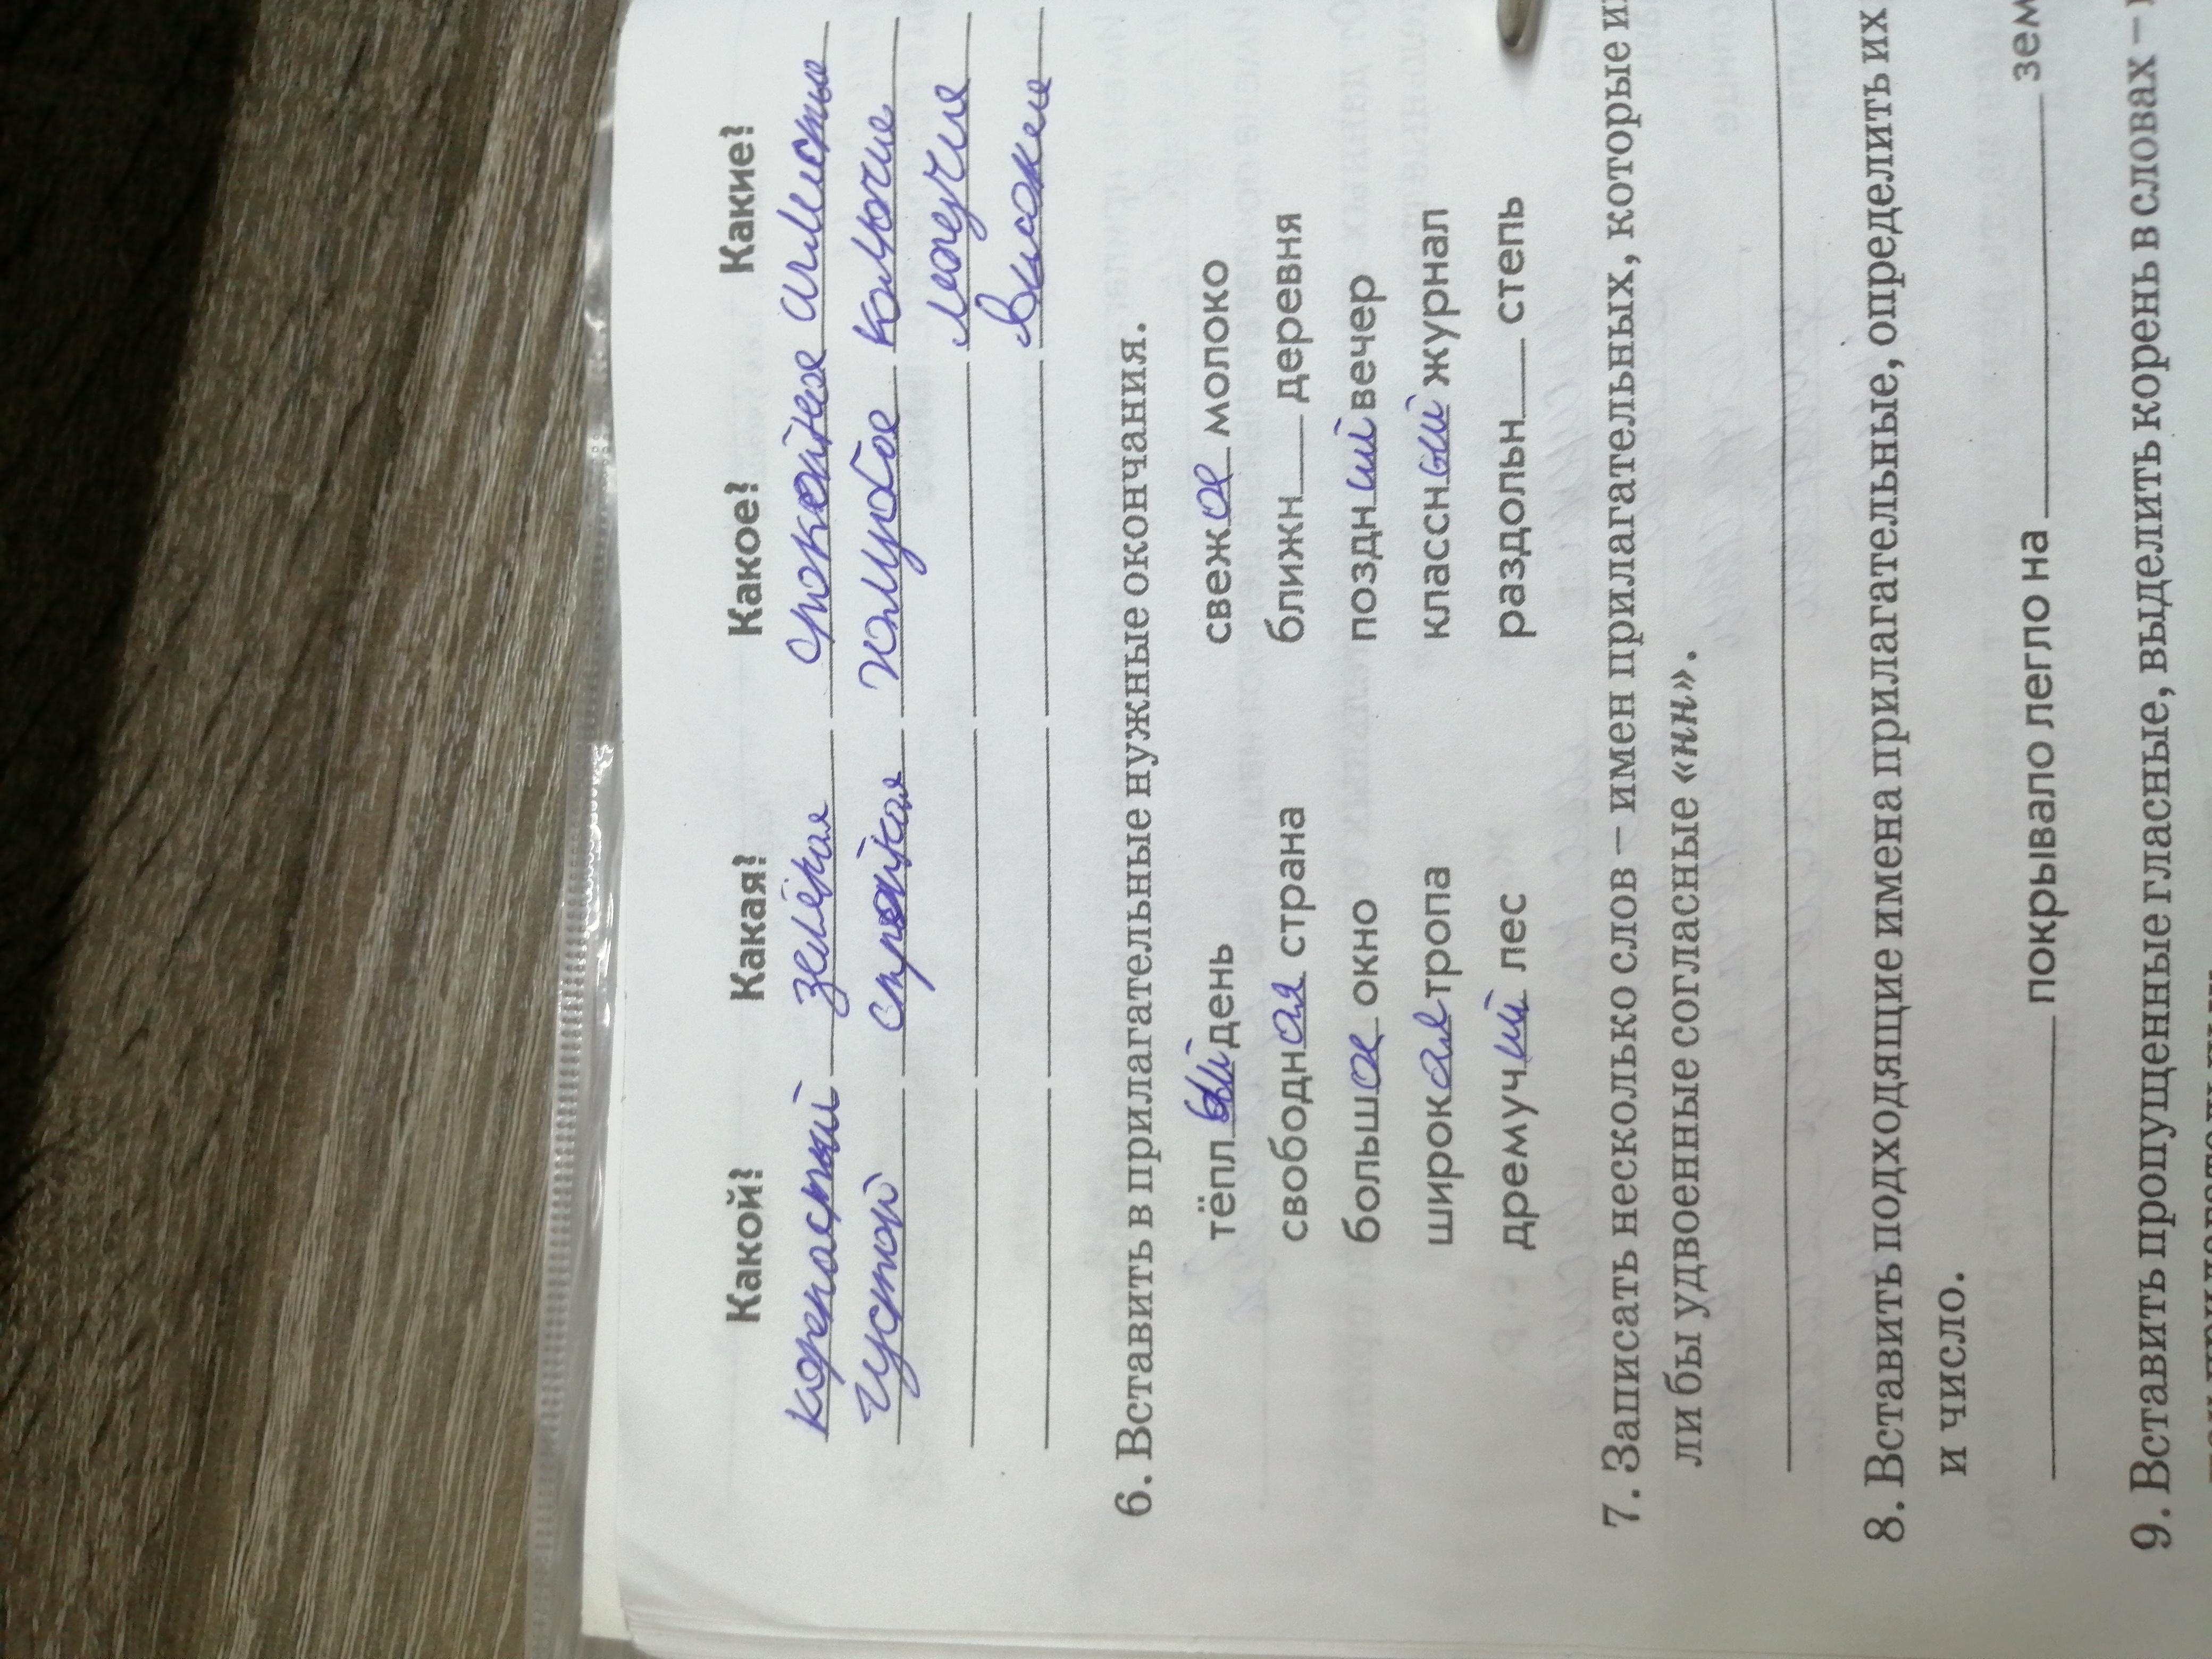 Какой? Какая? Какое? Какие?
коренастый зелёная спокойное душистые
густой стройная голубое колючие
могучие
высокие
6. Вставить в прилагательные нужные окончания.
тёплый день свежое молоко
свободная страна ближн___ деревня
большое окно поздний вечер
широкая тропа классный журнал
дремучий лес раздольн___ степь
7. Записать несколько слов – имен прилагательных, которые
ли бы удвоенные согласные «нн».
8. Вставить подходящие имена прилагательные, определить их
и число.
покрывало легло на зем
9. Вставить пропущенные гласные, выделить корень в словах –